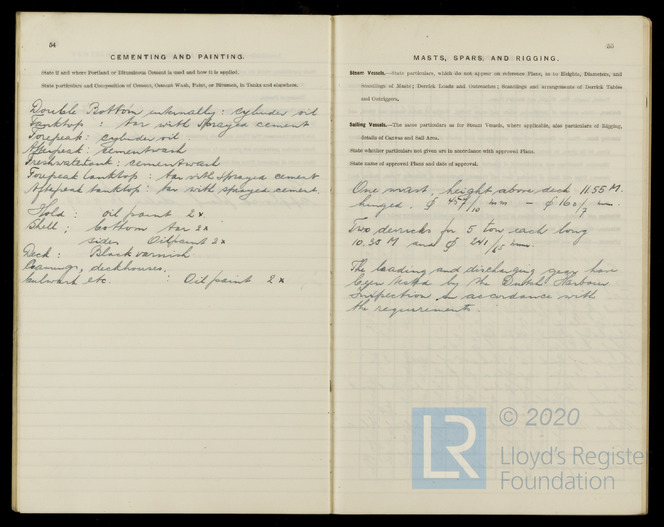 54
CEMENTING AND PAINTING.
State if and where Portland or Bituminous Cement is used and how it is applied.
State particulars and Composition of Cement, Cement Wash, Paint, or Bitumen, in Tanks and elsewhere.
Double Bottom internally: cylinder oil
Tanktop : tar with sprayed cement
Forepeak: cylinder oil.
Afterpeak: cementwash
Freshwatertank: cementwash
Forepeak tanktop: tar with sprayed cement
Aftpeak tanktop: tar with sprayed cement.
Hold: oil paint 2x
Shell: bottom tar 2x
sides Oilpaint 2x
Deck: Black varnish
Coamings, deckhouses.
bulwark etc. : Oilpaint 2x
55
MASTS, SPARS, AND RIGGING.
Steam Vessels.—State particulars, which do not appear on reference Plans, as to Heights, Diameters, and
Scantlings of Masts; Derrick Loads and Outreaches; Scantlings and arrangements of Derrick Tables
and Outriggers.
Sailing Vessels.—The same particulars as for Steam Vessels, where applicable, also particulars of Rigging,
details of Canvas and Sail Area.
State whether particulars not given are in accordance with approved Plans.
State name of approved Plans and date of approval.
One mast, height above deck 11.55 M.
hinged. ϕ /10 mm - ϕ 160/7 mm.
Two derricks for 5 ton each long
10.35 M and ϕ 241/6.5 mm.
The loading and discharging gear have
been tested by the Dutch Harbour
Inspection in accordance with
the requirements.
LR
© 2020
Lloyd's Register
Foundation